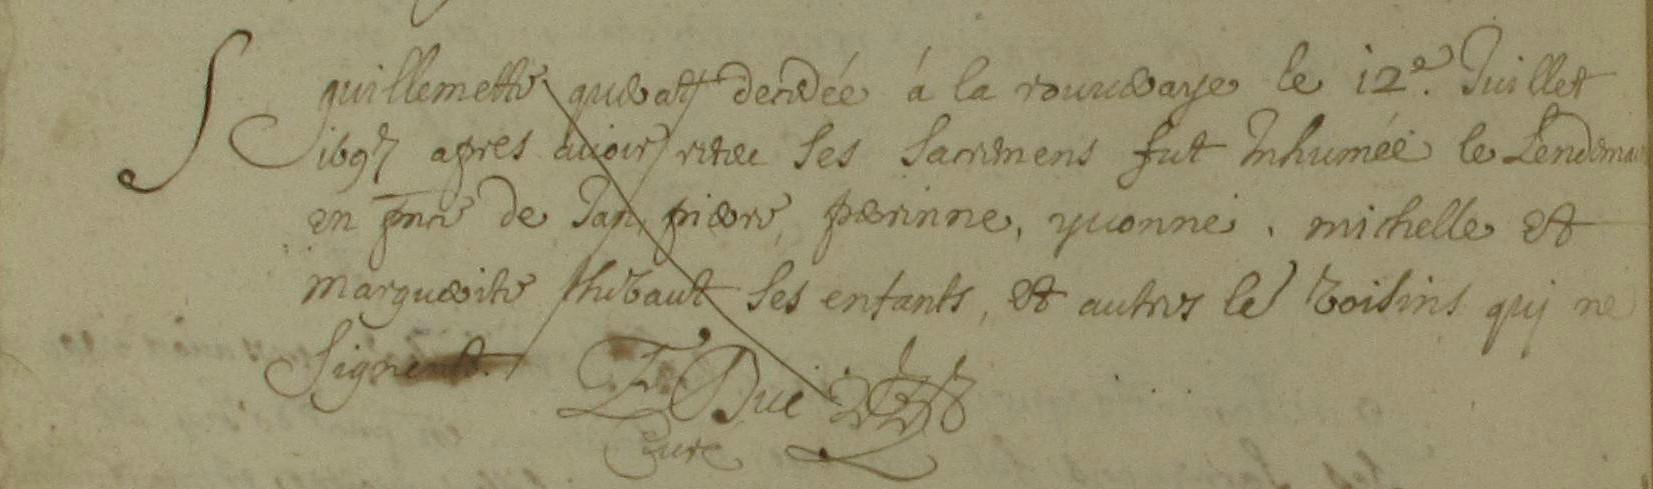 guillemette decedée á la le 12e. Juillet
1697 apres avoir receu ses sacremens fut Inhumée le Lendemain
en pnce de Jan, pierre, perinne, yvonne, michelle et
marguerite thibault ses enfants, et autres le voisins qui ne
signent.
Dué
Curé